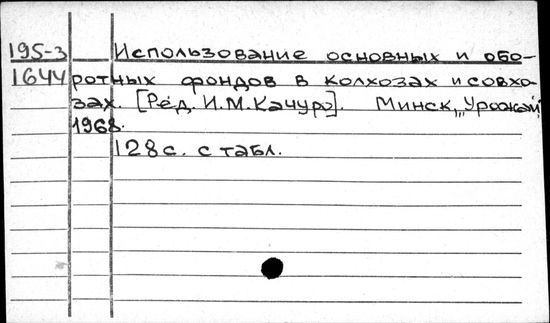 195-3 Использование основных и обо-
1644 ротных фондов в колхозах и совхо-
зах. [Ред. И.М. Качуро]. Минск, "Урожай",
1968.
128 с. с табл.